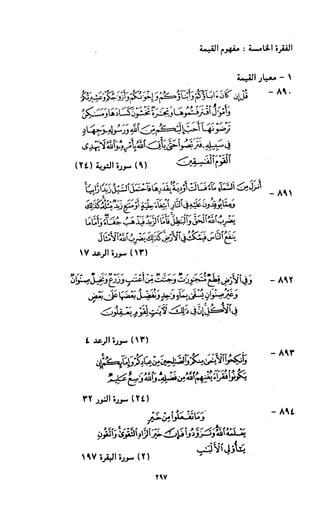 الفقرة الخامسة : مفهوم القيمة
١ - معيار القيمة
٨٩٠ - قُلْ إِن كَانَ ءَابَآؤُكُمْ وَأَبْنَآؤُكُمْ وَإِخْوَٰنُكُمْ وَأَزْوَٰجُكُمْ وَعَشِيرَتُكُمْ
وَأَمْوَٰلٌ ٱقْتَرَفْتُمُوهَا وَتِجَٰرَةٌ تَخْشَوْنَ كَسَادَهَا وَمَسَٰكِنُ
تَرْضَوْنَهَآ أَحَبَّ إِلَيْكُم مِّنَ ٱللَّهِ وَرَسُولِهِۦ وَجِهَادٍ
فِى سَبِيلِهِۦ فَتَرَبَّصُوا۟ حَتَّىٰ يَأْتِىَ ٱللَّهُ بِأَمْرِهِۦ وَٱللَّهُ لَا يَهْدِى
ٱلْقَوْمَ ٱلْفَٰسِقِينَ
(٩) سورة التوبة (٢٤)
٨٩١ - أَنزَلَ مِنَ ٱلسَّمَآءِ مَآءً فَسَالَتْ أَوْدِيَةٌۢ بِقَدَرِهَا فَٱحْتَمَلَ ٱلسَّيْلُ زَبَدًا رَّابِيًا
وَمِمَّا يُوقِدُونَ عَلَيْهِ فِى ٱلنَّارِ ٱبْتِغَآءَ حِلْيَةٍ أَوْ مَتَٰعٍ زَبَدٌ مِّثْلُهُۥ كَذَٰلِكَ
يَضْرِبُ ٱللَّهُ ٱلْحَقَّ وَٱلْبَٰطِلَ فَأَمَّا ٱلزَّبَدُ فَيَذْهَبُ جُفَآءً وَأَمَّا مَا
يَنفَعُ ٱلنَّاسَ فَيَمْكُثُ فِى ٱلْأَرْضِ كَذَٰلِكَ يَضْرِبُ ٱللَّهُ ٱلْأَمْثَالَ
(١٣) سورة الرعد ١٧
٨٩٢ - وَفِى ٱلْأَرْضِ قِطَعٌ مُّتَجَٰوِرَٰتٌ وَجَنَّٰتٌ مِّنْ أَعْنَٰبٍ وَزَرْعٌ وَنَخِيلٌ صِنْوَانٌ
وَغَيْرُ صِنْوَانٍ يُسْقَىٰ بِمَآءٍ وَٰحِدٍ وَنُفَضِّلُ بَعْضَهَا عَلَىٰ بَعْضٍ
فِى ٱلْأُكُلِ إِنَّ فِى ذَٰلِكَ لَءَايَٰتٍ لِّقَوْمٍ يَعْقِلُونَ
(١٣) سورة الرعد ٤
٨٩٣ - وَأَنكِحُوا۟ ٱلْأَيَٰمَىٰ مِنكُمْ وَٱلصَّٰلِحِينَ مِنْ عِبَادِكُمْ وَإِمَآئِكُمْ إِن
يَكُونُوا۟ فُقَرَآءَ يُغْنِهِمُ ٱللَّهُ مِن فَضْلِهِۦ وَٱللَّهُ وَٰسِعٌ عَلِيمٌ
(٢٤) سورة النور ٣٢
٨٩٤ - وَمَا تَفْعَلُوا۟ مِنْ خَيْرٍ
يَعْلَمْهُ ٱللَّهُ وَتَزَوَّدُوا۟ فَإِنَّ خَيْرَ ٱلزَّادِ ٱلتَّقْوَىٰ وَٱتَّقُونِ
يَٰٓأُو۟لِى ٱلْأَلْبَٰبِ
(٢) سورة البقرة ١٩٧
٢٩٧